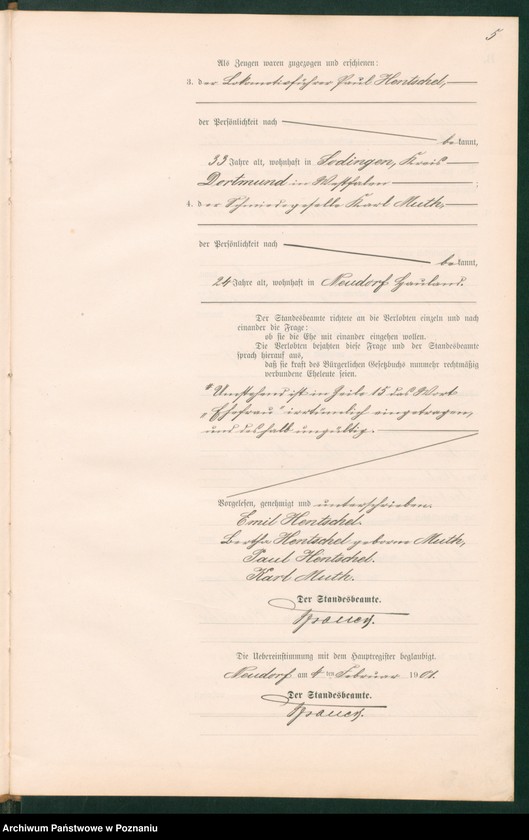 5
Als Zeugen waren zugezogen und erschienen:
3. der Lokomotivführer Paul Hentschel,
der Persönlichkeit nach
bekannt,
33 Jahre alt, wohnhaft in Sodingen, Kreis
Dortmund in Westfalen ;
4. der Schmiedegeselle Karl Muth,
der Persönlichkeit nach
bekannt,
24 Jahre alt, wohnhaft in Neudorf Hauland.
Der Standesbeamte richtete an die Verlobten einzeln und nach
einander die Frage:
ob sie die Ehe mit einander eingehen wollen.
Die Verlobten bejahten diese Frage und der Standesbeamte
sprach hierauf aus,
daß sie kraft des Bürgerlichen Gesetzbuchs nunmehr rechtmäßig
verbundene Eheleute seien.
Umstehend ist in Zeile 15 das Wort
„Ehefrau" irrtümlich eingetragen,
und deshalb ungültig.
Vorgelesen, genehmigt und unterschrieben.
Emil Hentschel.
Bertha Hentschel geborne Muth,
Paul Hentschel.
Karl Muth.
Der Standesbeamte.
Die Uebereinstimmung mit dem Hauptregister beglaubigt.
Neudorf am 4 ten Februar 1901.
Der Standesbeamte.
Archiwum Państwowe w Poznaniu